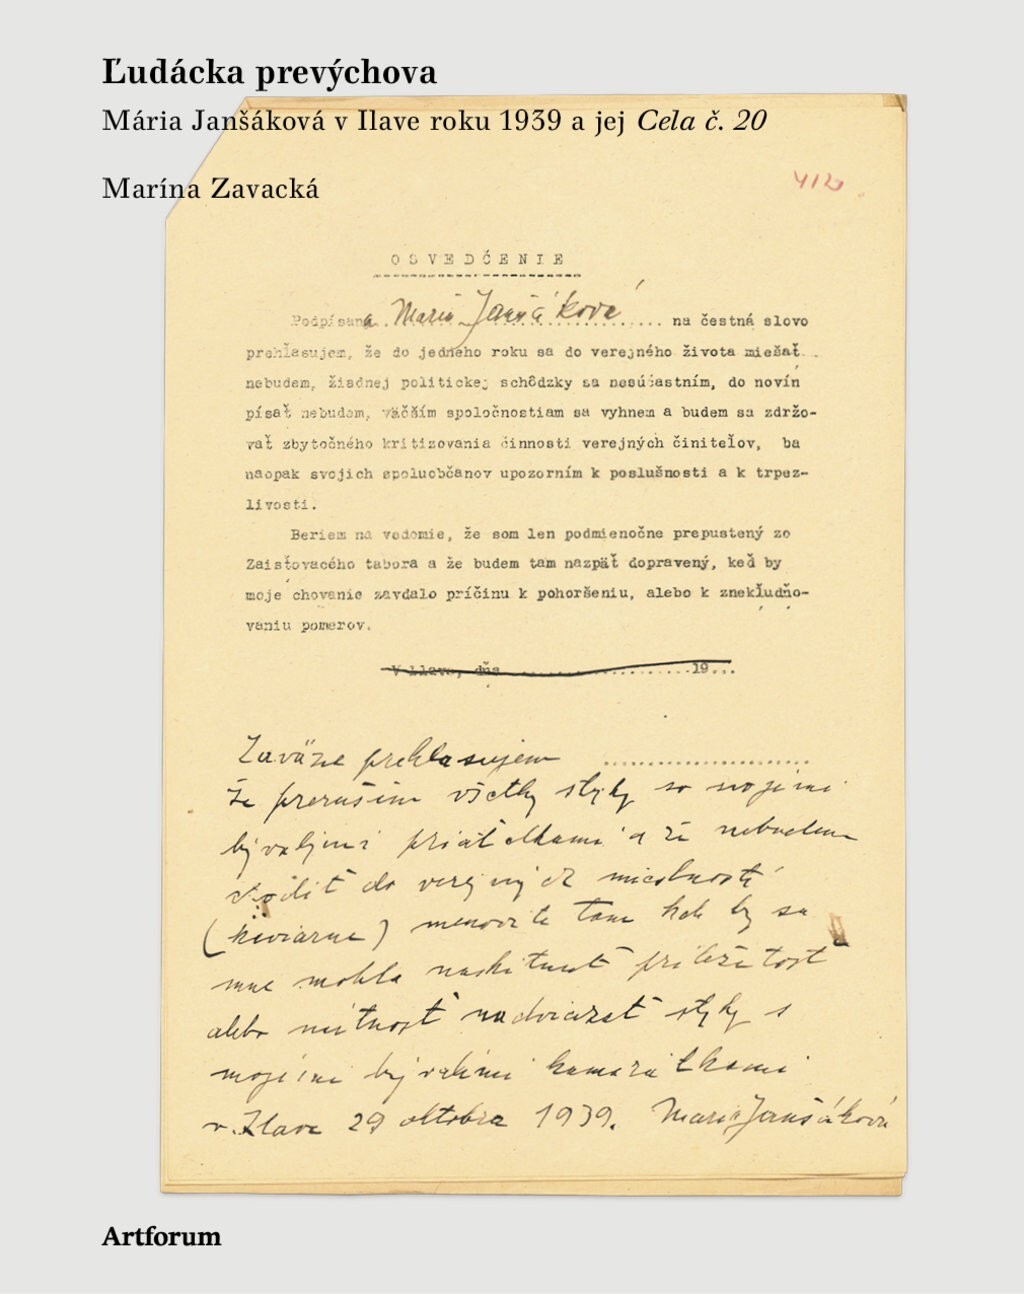 Ľudácka prevýchova
Mária Janšáková v Ilave roku 1939 a jej Cela č. 20
Marína Zavacká
412
OSVEDČENIE
Podpísaná Maria Janšáková na čestná slovo
prehlasujem, že do jedného roku sa do verejného života miešať
nebudem, žiadnej politickej schôdzky sa nesúčastním, do novín
písať nebudem, väčším spoločnostiam sa vyhnem a budem sa zdržo-
vať zbytočného kritizovania činnosti verejných činiteľov, ba
naopak svojich spoluobčanov upozorním k poslušnosti a k trpez-
livosti.
Beriem na vedomie, že som len podmienočne prepustený zo
Zaisťovacého tabora a že budem tam nazpäť dopravený, keď by
moje chovanie zavdalo príčinu k pohoršeniu, alebo k znekľudňo-
vaniu pomerov.
V Ilave, dňa 19...
Zaväzne prehlasujem
že prerušim všetky styky so svojimi
byvalými priateľkami a že nebudem
chodiť do verejných miestností
(kaviarne) menovite tam kde by sa
mne mohla naskitnuť príležitosť
alebo nutnosť nadviazať styky s
mojimi byvalimi kamarátkami
v Ilave 29 oktobra 1939. Maria Janšáková
Artforum